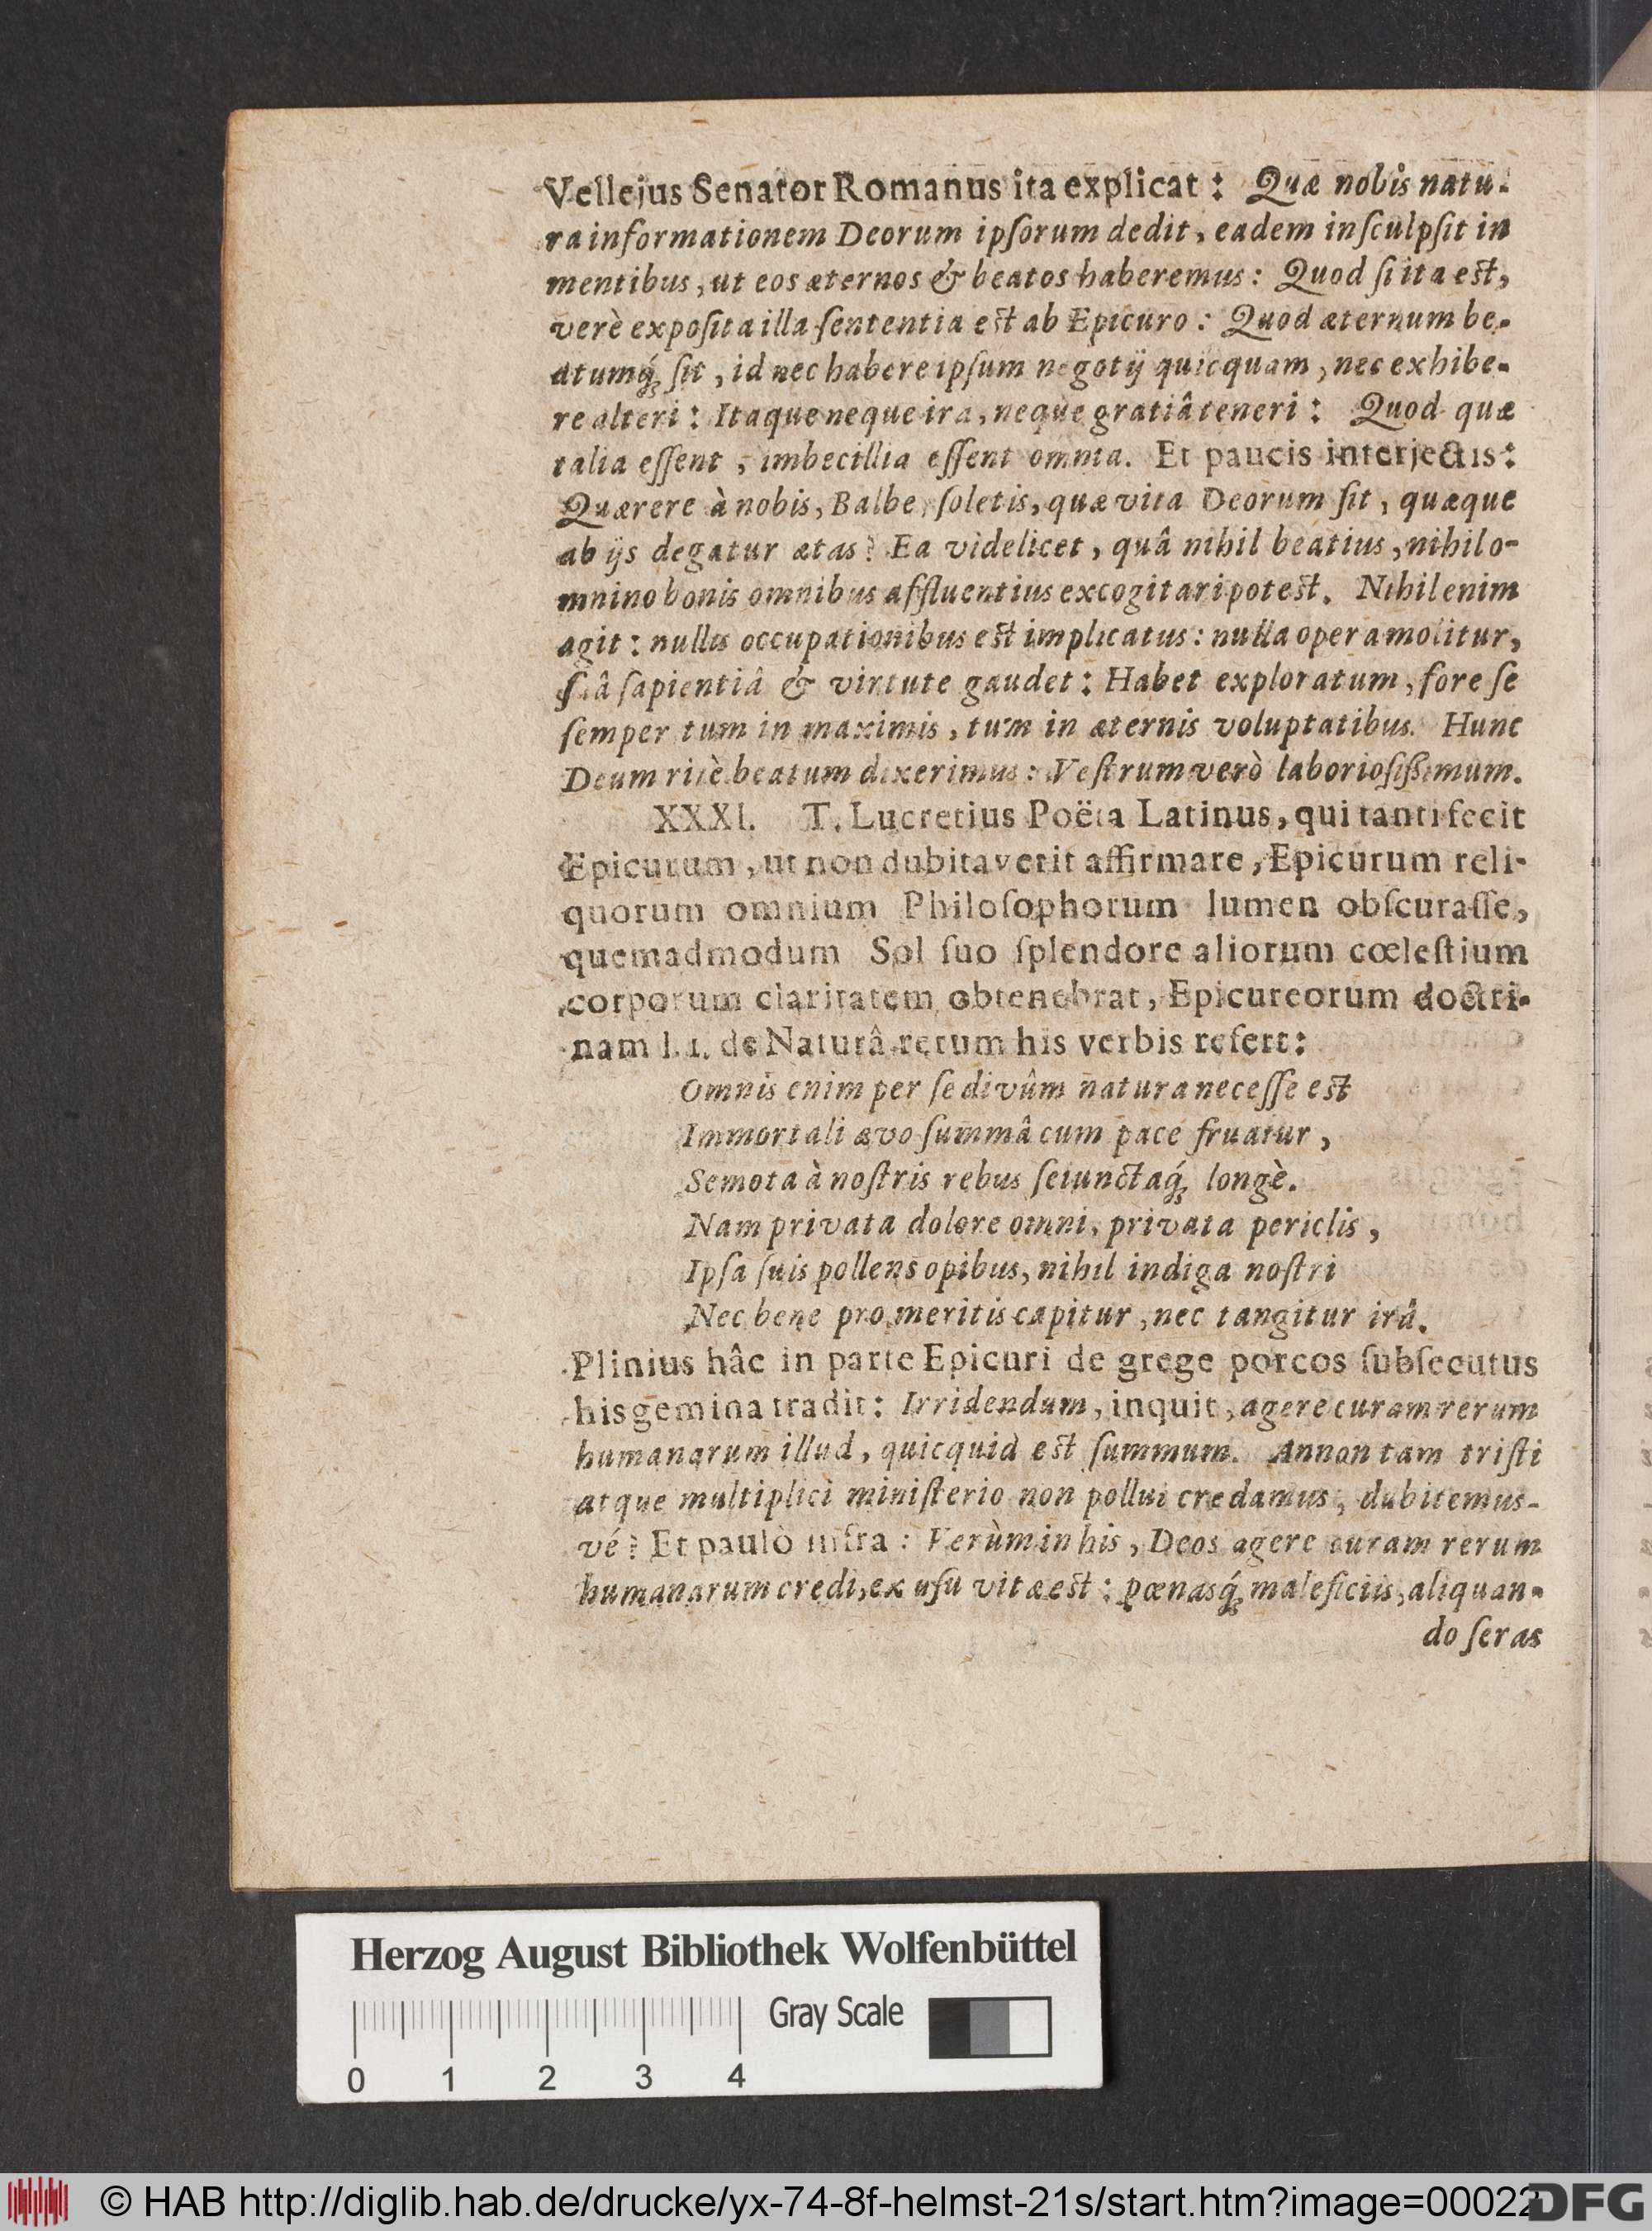 Vellejus Senator Romanus ita explicat: Quæ nobis natu-
ra informationem Deorum ipſorum dedit, eadem inſculpſit in
mentibus, ut eos æternos & beatos haberemus: Quod ſi ita est,
verè expoſita illa ſententia est ab Epicuro: Quod æternum be-
atumq́; ſit, id nec habere ipſum negotij quicquam, nec exhibe-
re alteri: Itaque neque ira, neque gratiâ teneri: Quod quæ
talia eſſent, imbecillia eſſent omnia. Et paucis interjectis:
Quærere à nobis, Balbe, ſoletis, quæ vita Deorum ſit, quæque
ab ijs degatur ætas? Ea videlicet, quâ nihil beatius, nihil o-
mnino bonis omnibus affluentius excogitari potest. Nihil enim
agit: nullis occupationibus est implicatus: nulla opera molitur,
ſuâ ſapientiâ & virtute gaudet: Habet exploratum, fore ſe
ſemper tum in maximis, tum in æternis voluptatibus. Hunc
Deum ritè beatum dixerimus: Veſtrum verò laborioſiſſimum.
XXXI. T. Lucretius Poëta Latinus, qui tanti fecit
Epicurum, ut non dubitaverit affirmare, Epicurum reli-
quorum omnium Philoſophorum lumen obſcuraſſe,
quemadmodum Sol ſuo ſplendore aliorum cœleſtium
corporum claritatem obtenebrat, Epicureorum doctri-
nam l. 1. de Naturâ rerum his verbis refert:
Omnis enim per ſe divûm natura neceſſe est
Immortali ævo ſummâ cum pace fruatur,
Semota à noſtris rebus ſeiunctaq́; longè.
Nam privata dolore omni, privata periclis,
Ipſa ſuis pollens opibus, nihil indiga noſtri
Nec bene pro meritis capitur, nec tangitur irâ.
Plinius hâc in parte Epicuri de grege porcos ſubſecutus
his gemina tradit: Irridendum, inquit, agere curam rerum
humanarum illud, quicquid est ſummum. Annon tam triſti
atque multiplici miniſterio non pollui credamus, dubitemus-
vé? Et paulò infra: Verùm in his, Deos agere curam rerum
humanarum credi, ex uſu vitæ est: pœnasq́; maleficiis, aliquan-
do ſeras
Herzog August Bibliothek Wolfenbüttel
Gray Scale
0 1 2 3 4
© HAB http://diglib.hab.de/drucke/yx-74-8f-helmst-21s/start.htm?image=00022
DFG